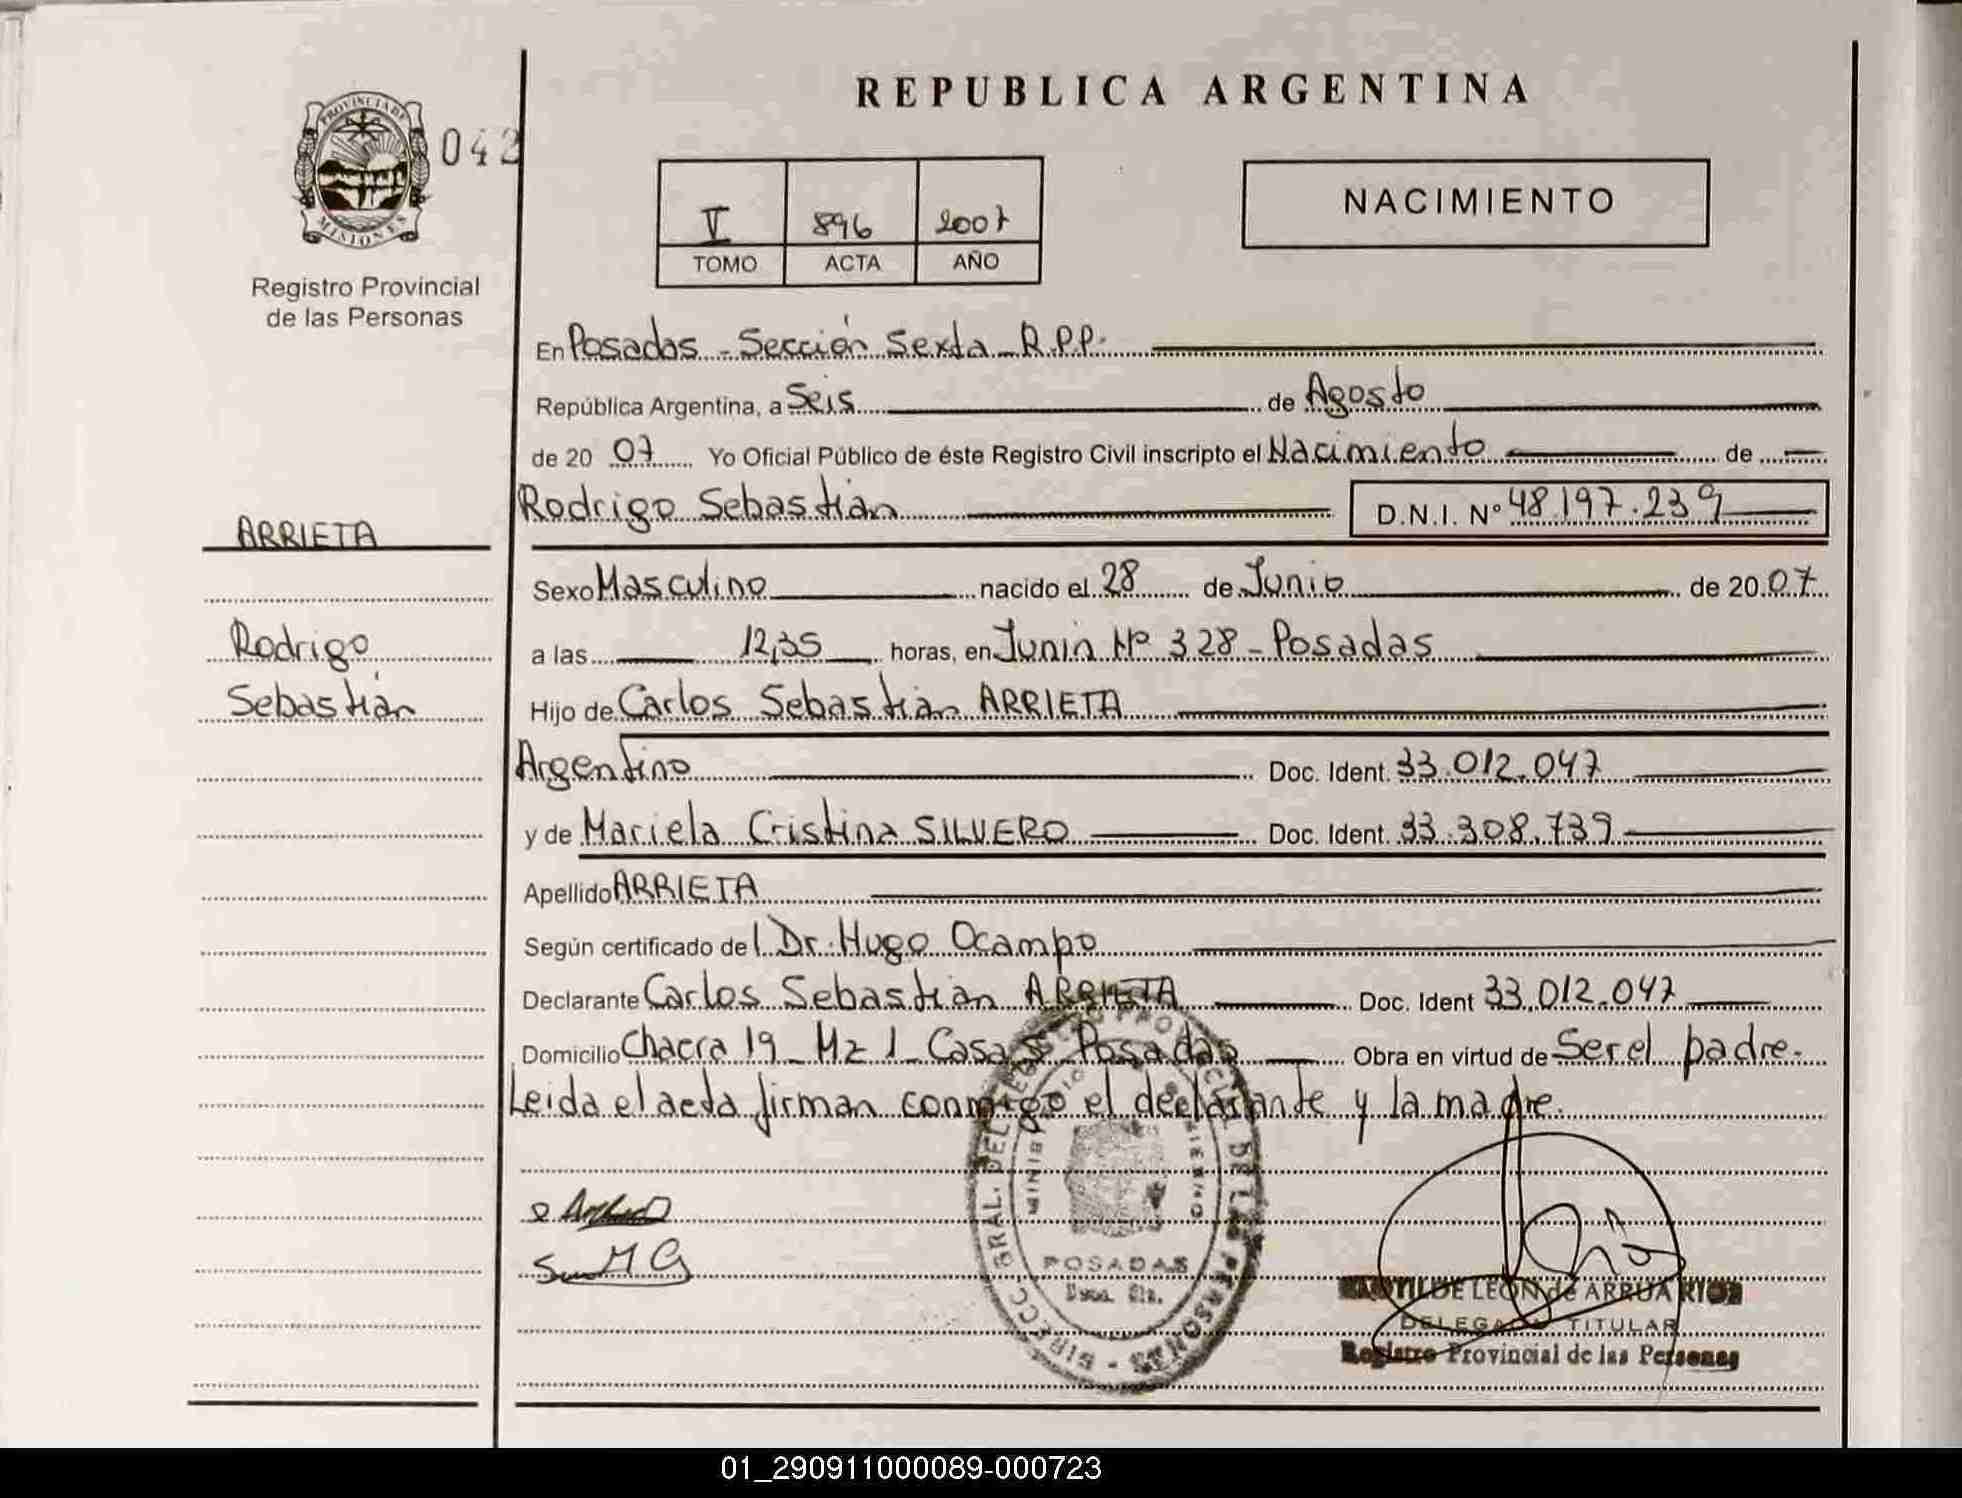 REPUBLICA ARGENTINA
PROVINCIA DE
MISIONES
042
Registro Provincial
de las Personas
V 896 2007
TOMO ACTA AÑO
NACIMIENTO
En Posadas - Sección Sexta R.P.P.
República Argentina, a Seis de Agosto
de 20 07 Yo Oficial Público de éste Registro Civil inscripto el Nacimiento de
Rodrigo Sebastián D.N.I. Nº 48.197.239
ARRIETA
Rodrigo
Sebastián
Sexo Masculino nacido el 28 de Junio de 20 07
a las 12,35 horas, en Junín Nº 328 - Posadas
Hijo de Carlos Sebastián ARRIETA
Argentino Doc. Ident. 33.012.047
y de Mariela Cristina SILVERO Doc. Ident. 33.308.739
Apellido ARRIETA
Según certificado del Dr. Hugo Ocampo
Declarante Carlos Sebastián ARRIETA Doc. Ident 33.012.047
Domicilio Chacra 19 - Mz 1 - Casa Posadas Obra en virtud de Ser el padre.
Leida el acta firman conmigo el declarante y la madre.
POSADAS
DE LEON de ARRUA
DELEGADA TITULAR
Registro Provincial de las Personas
01_290911000089-000723